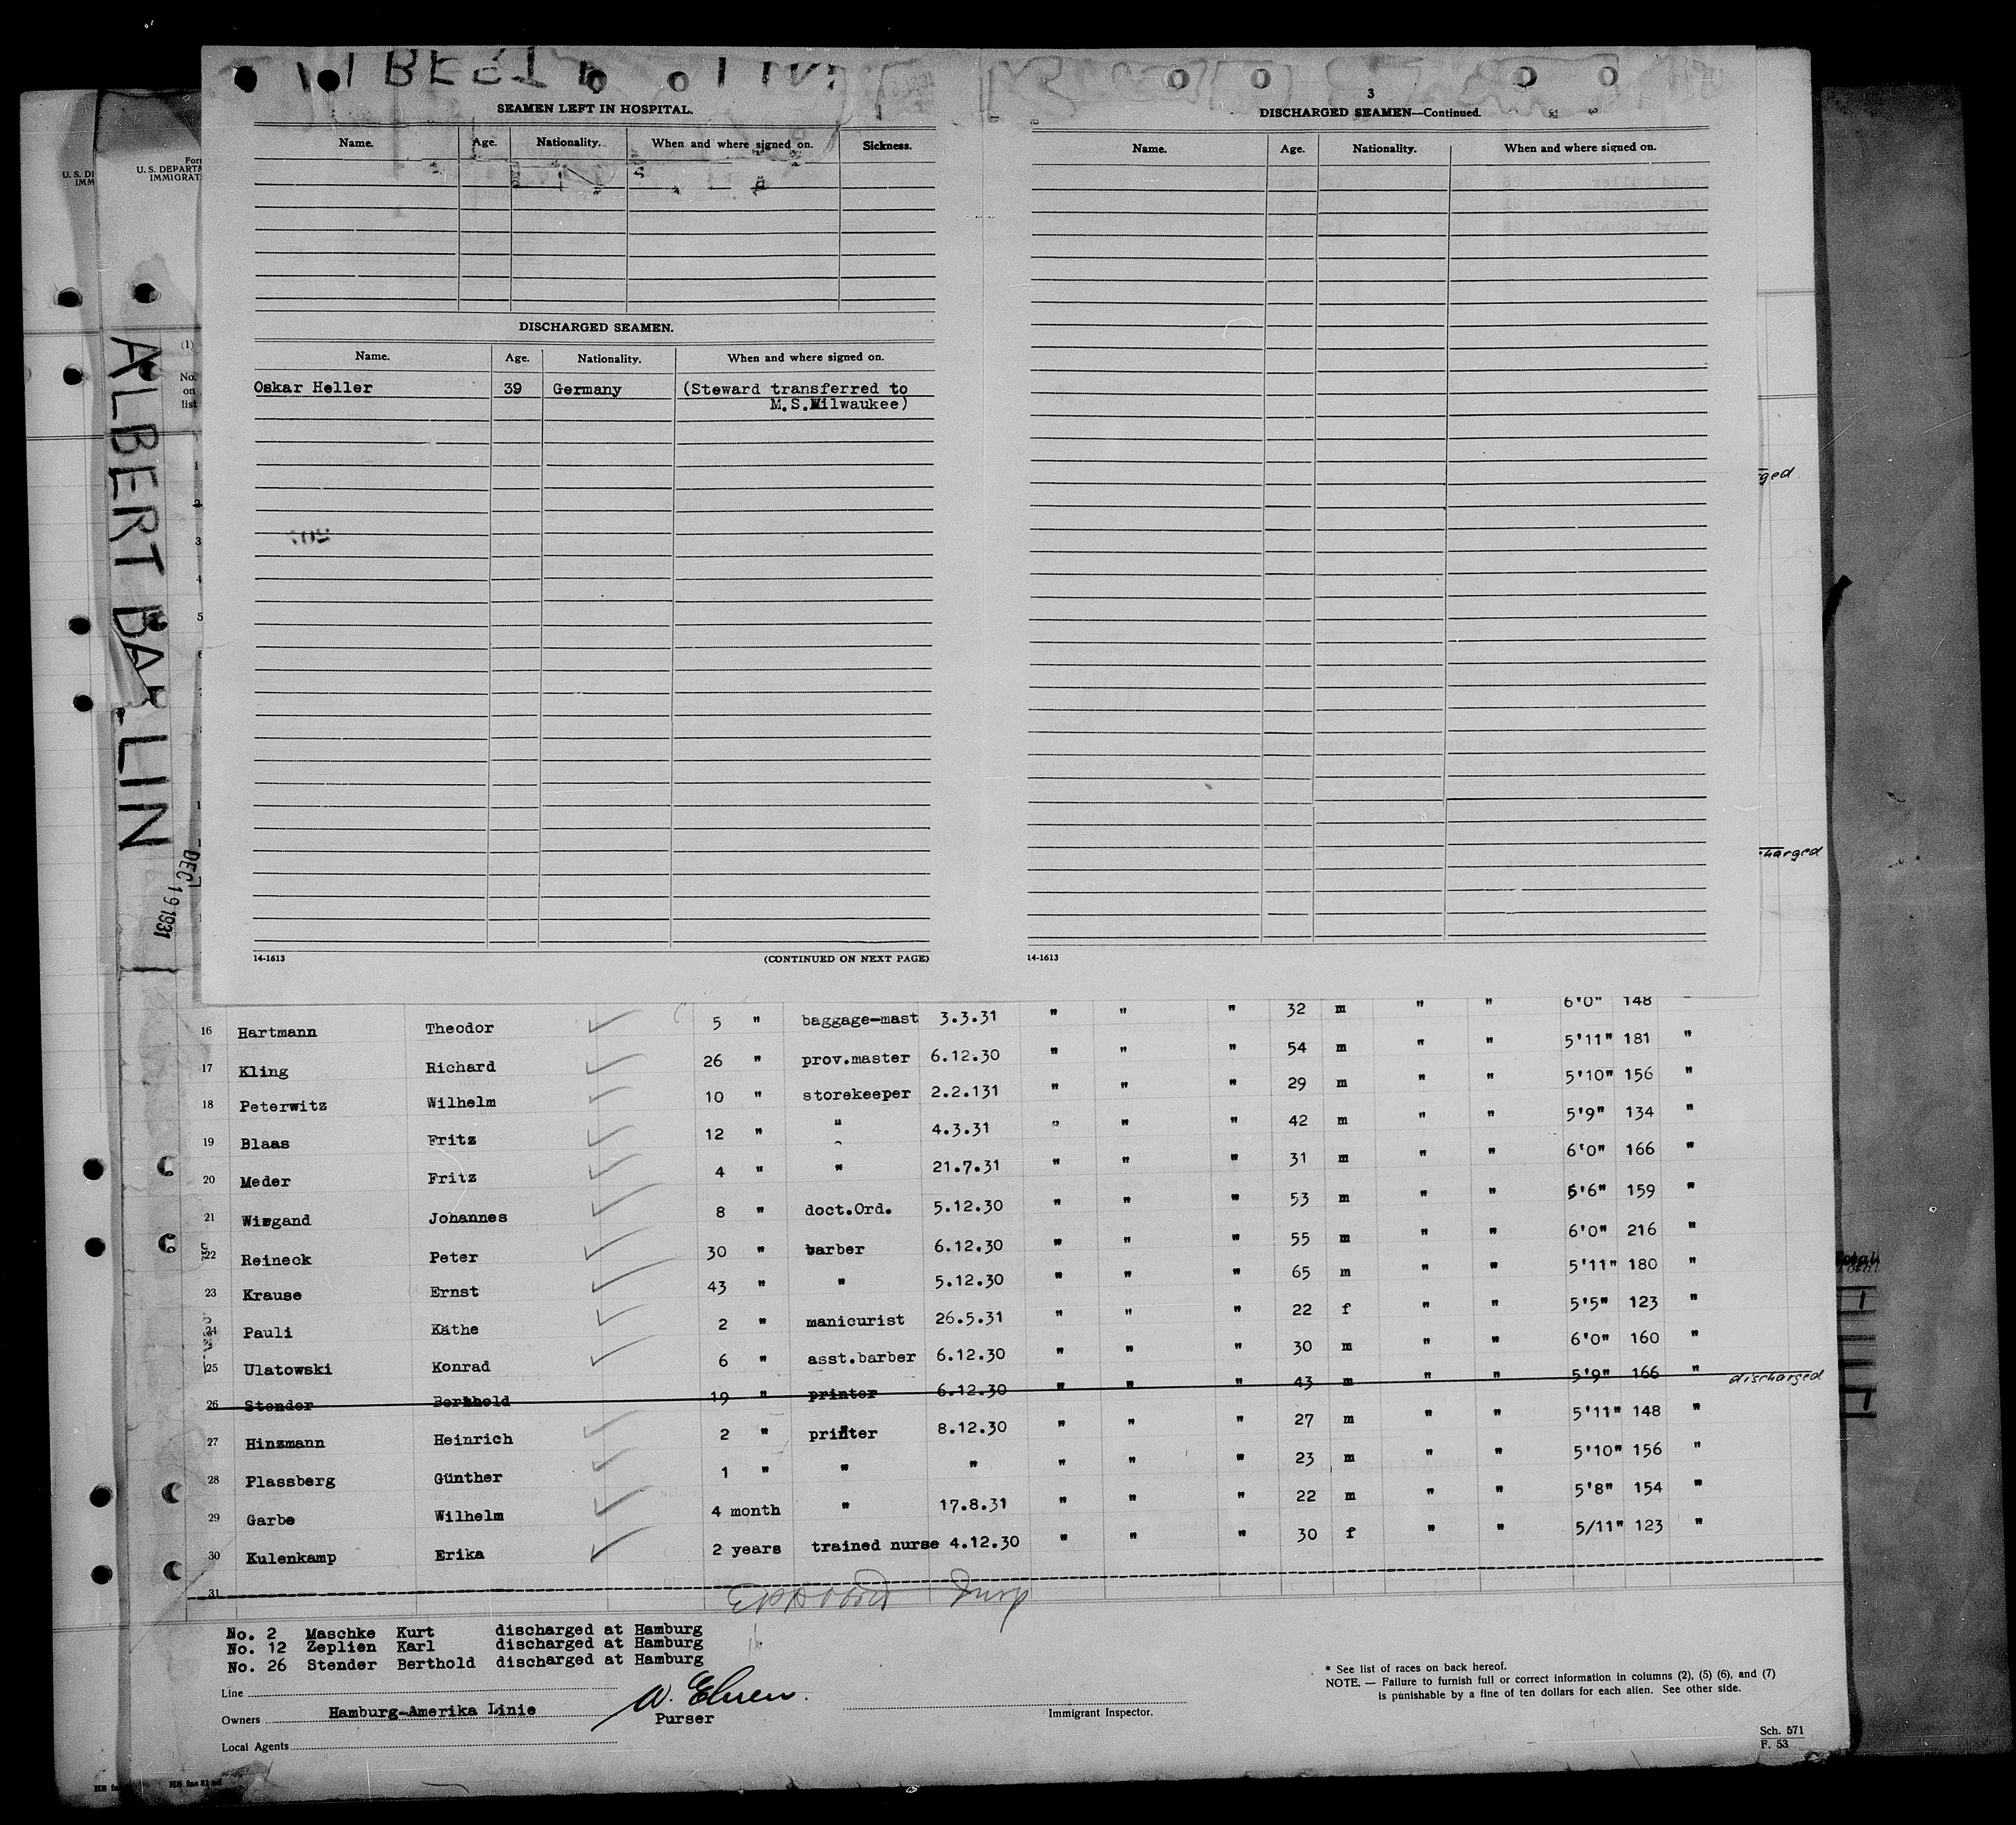 SEAMEN LEFT IN HOSPITAL.
Name. Age. Nationality. When and where signed on. Sickness.
DISCHARGED SEAMEN.
Name. Age. Nationality. When and where signed on.
Oskar Heller 39 Germany (Steward transferred to
M.S.Milwaukee)
14-1613 (CONTINUED ON NEXT PAGE)
3
DISCHARGED SEAMEN—Continued.
Name. Age. Nationality. When and where signed on.
14-1613
U. S. DEPARTM
IMMIGRAT
(1)
No.
on
list
ALBERT BALLIN
DEC 19 1931
ged
charged
16 Hartmann Theodor 5 " baggage-mast 3.3.31 " " " 32 m " " 6'0" 148 "
17 Kling Richard 26 " prov.master 6.12.30 " " " 54 m " " 5'11" 181 "
18 Peterwitz Wilhelm 10 " storekeeper 2.2.131 " " " 29 m " " 5'10" 156 "
19 Blaas Fritz 12 " " 4.3.31 " " " 42 m " " 5'9" 134 "
20 Meder Fritz 4 " " 21.7.31 " " " 31 m " " 6'0" 166 "
21 Wiegand Johannes 8 " doct.Ord. 5.12.30 " " " 53 m " " 5'6" 159 "
22 Reineck Peter 30 " barber 6.12.30 " " " 55 m " " 6'0" 216 "
23 Krause Ernst 43 " " 5.12.30 " " " 65 m " " 5'11" 180 "
24 Pauli Käthe 2 " manicurist 26.5.31 " " " 22 f " " 5'5" 123 "
25 Ulatowski Konrad 6 " asst.barber 6.12.30 " " " 30 m " " 6'0" 160 "
26 Stender Berthold 19 " printer 6.12.30 " " " 43 m " " 5'9" 166 " discharged
27 Hinzmann Heinrich 2 " printer 8.12.30 " " " 27 m " " 5'11" 148 "
28 Plassberg Günther 1 " " " " " " 23 m " " 5'10" 156 "
29 Garbe Wilhelm 4 month " 17.8.31 " " " 22 m " " 5'8" 154 "
30 Kulenkamp Erika 2 years trained nurse 4.12.30 " " " 30 f " " 5/11" 123 "
31
No. 2 Maschke Kurt discharged at Hamburg
No. 12 Zeplien Karl discharged at Hamburg
No. 26 Stender Berthold discharged at Hamburg
Line
Owners Hamburg-Amerika Linie
Purser
Local Agents
Immigrant Inspector.
* See list of races on back hereof.
NOTE. — Failure to furnish full or correct information in columns (2), (5) (6), and (7)
is punishable by a fine of ten dollars for each alien. See other side.
Sch. 571
F. 53